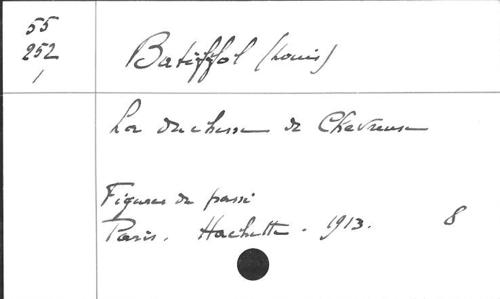 55
252
1
Batiffol (Louis)
La duchesse de Chevreuse
Figures du passé
Paris. Hachette. 1913. 8